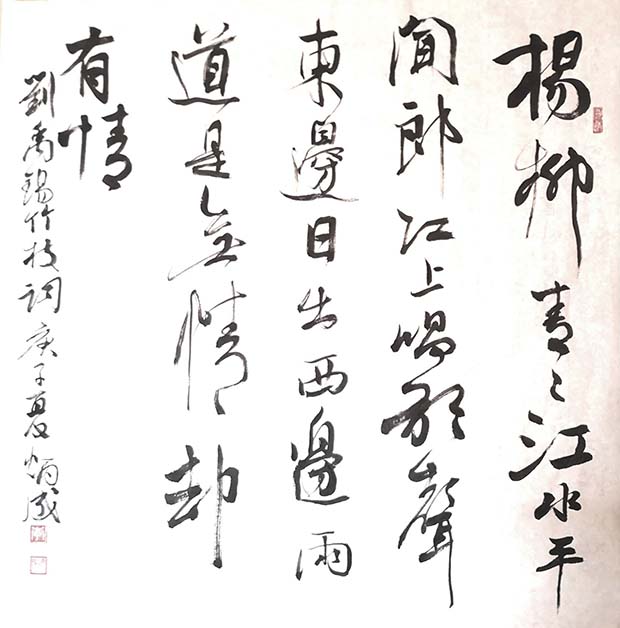 楊柳青〻江水平
聞郎江上唱歌聲
東邊日出西邊雨
道是無情却
有情
劉禹錫竹枝詞 庚子夏 炳成